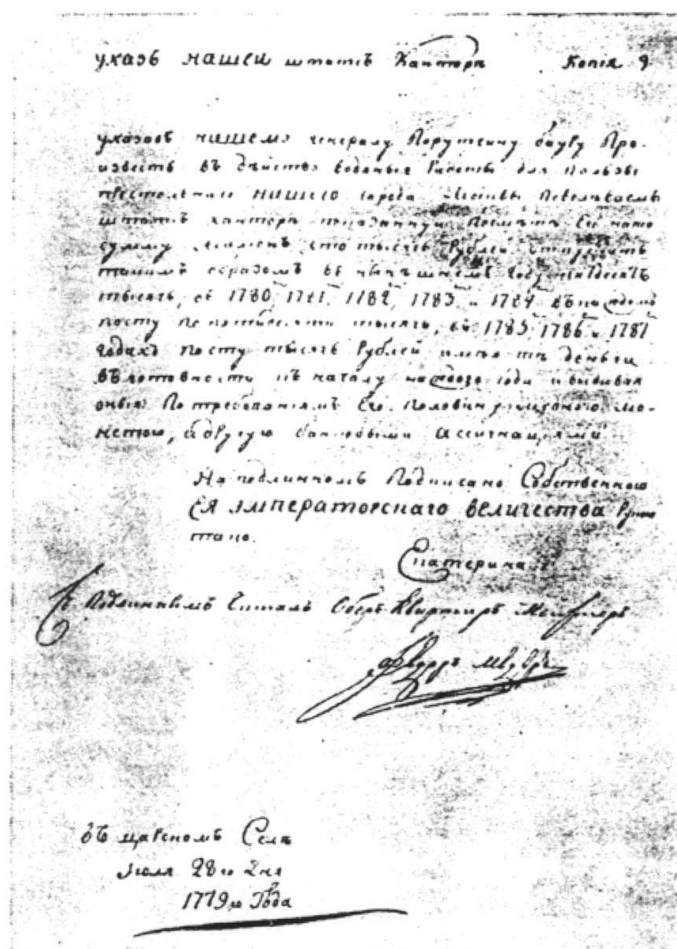 указъ нашей штатсъ Канторѣ Копія
указавъ нашему генералу Порутчику бауру Про-
известь въ дѣйство водяныя для пользы
престольнаго нашего города Москвы Повелѣваемъ
штатсъ канторѣ на то
сумму милионъ сто тысячь Рублей
такимъ образомъ въ нынѣшнемъ году
тысячь, въ 1780, 1781, 1782, 1783 и 1784 въ каждомъ
посту по тысячь, въ 1785, 1786 и 1787
годахъ посту тысячь Рублей имѣя тѣ деньги
въ готовности къ началу каждаго года и выдавая
оныя По требованіямъ Его. Половину мо-
нетою, а другую банковыми ассигнацыями
На подлинномъ Подписано Собственною
ЕЯ императорскаго величества Рукою
тако.
Екатерина.
Съ Подлиннымъ Читалъ Оберъ Квартиръ Мейстеръ
въ царскомъ Селѣ
Июля 28го Дня
1779го Года